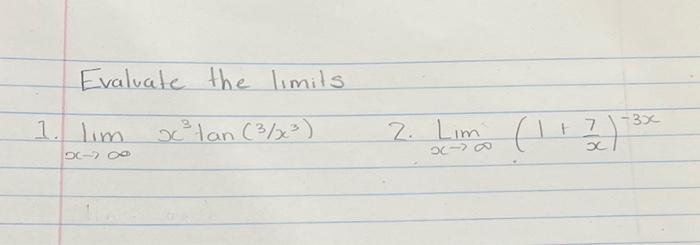 Evaluate the limits
1. lim x→∞ x³tan(3/x³) 2. Lim x→∞ (1 + 7/x)^-3x